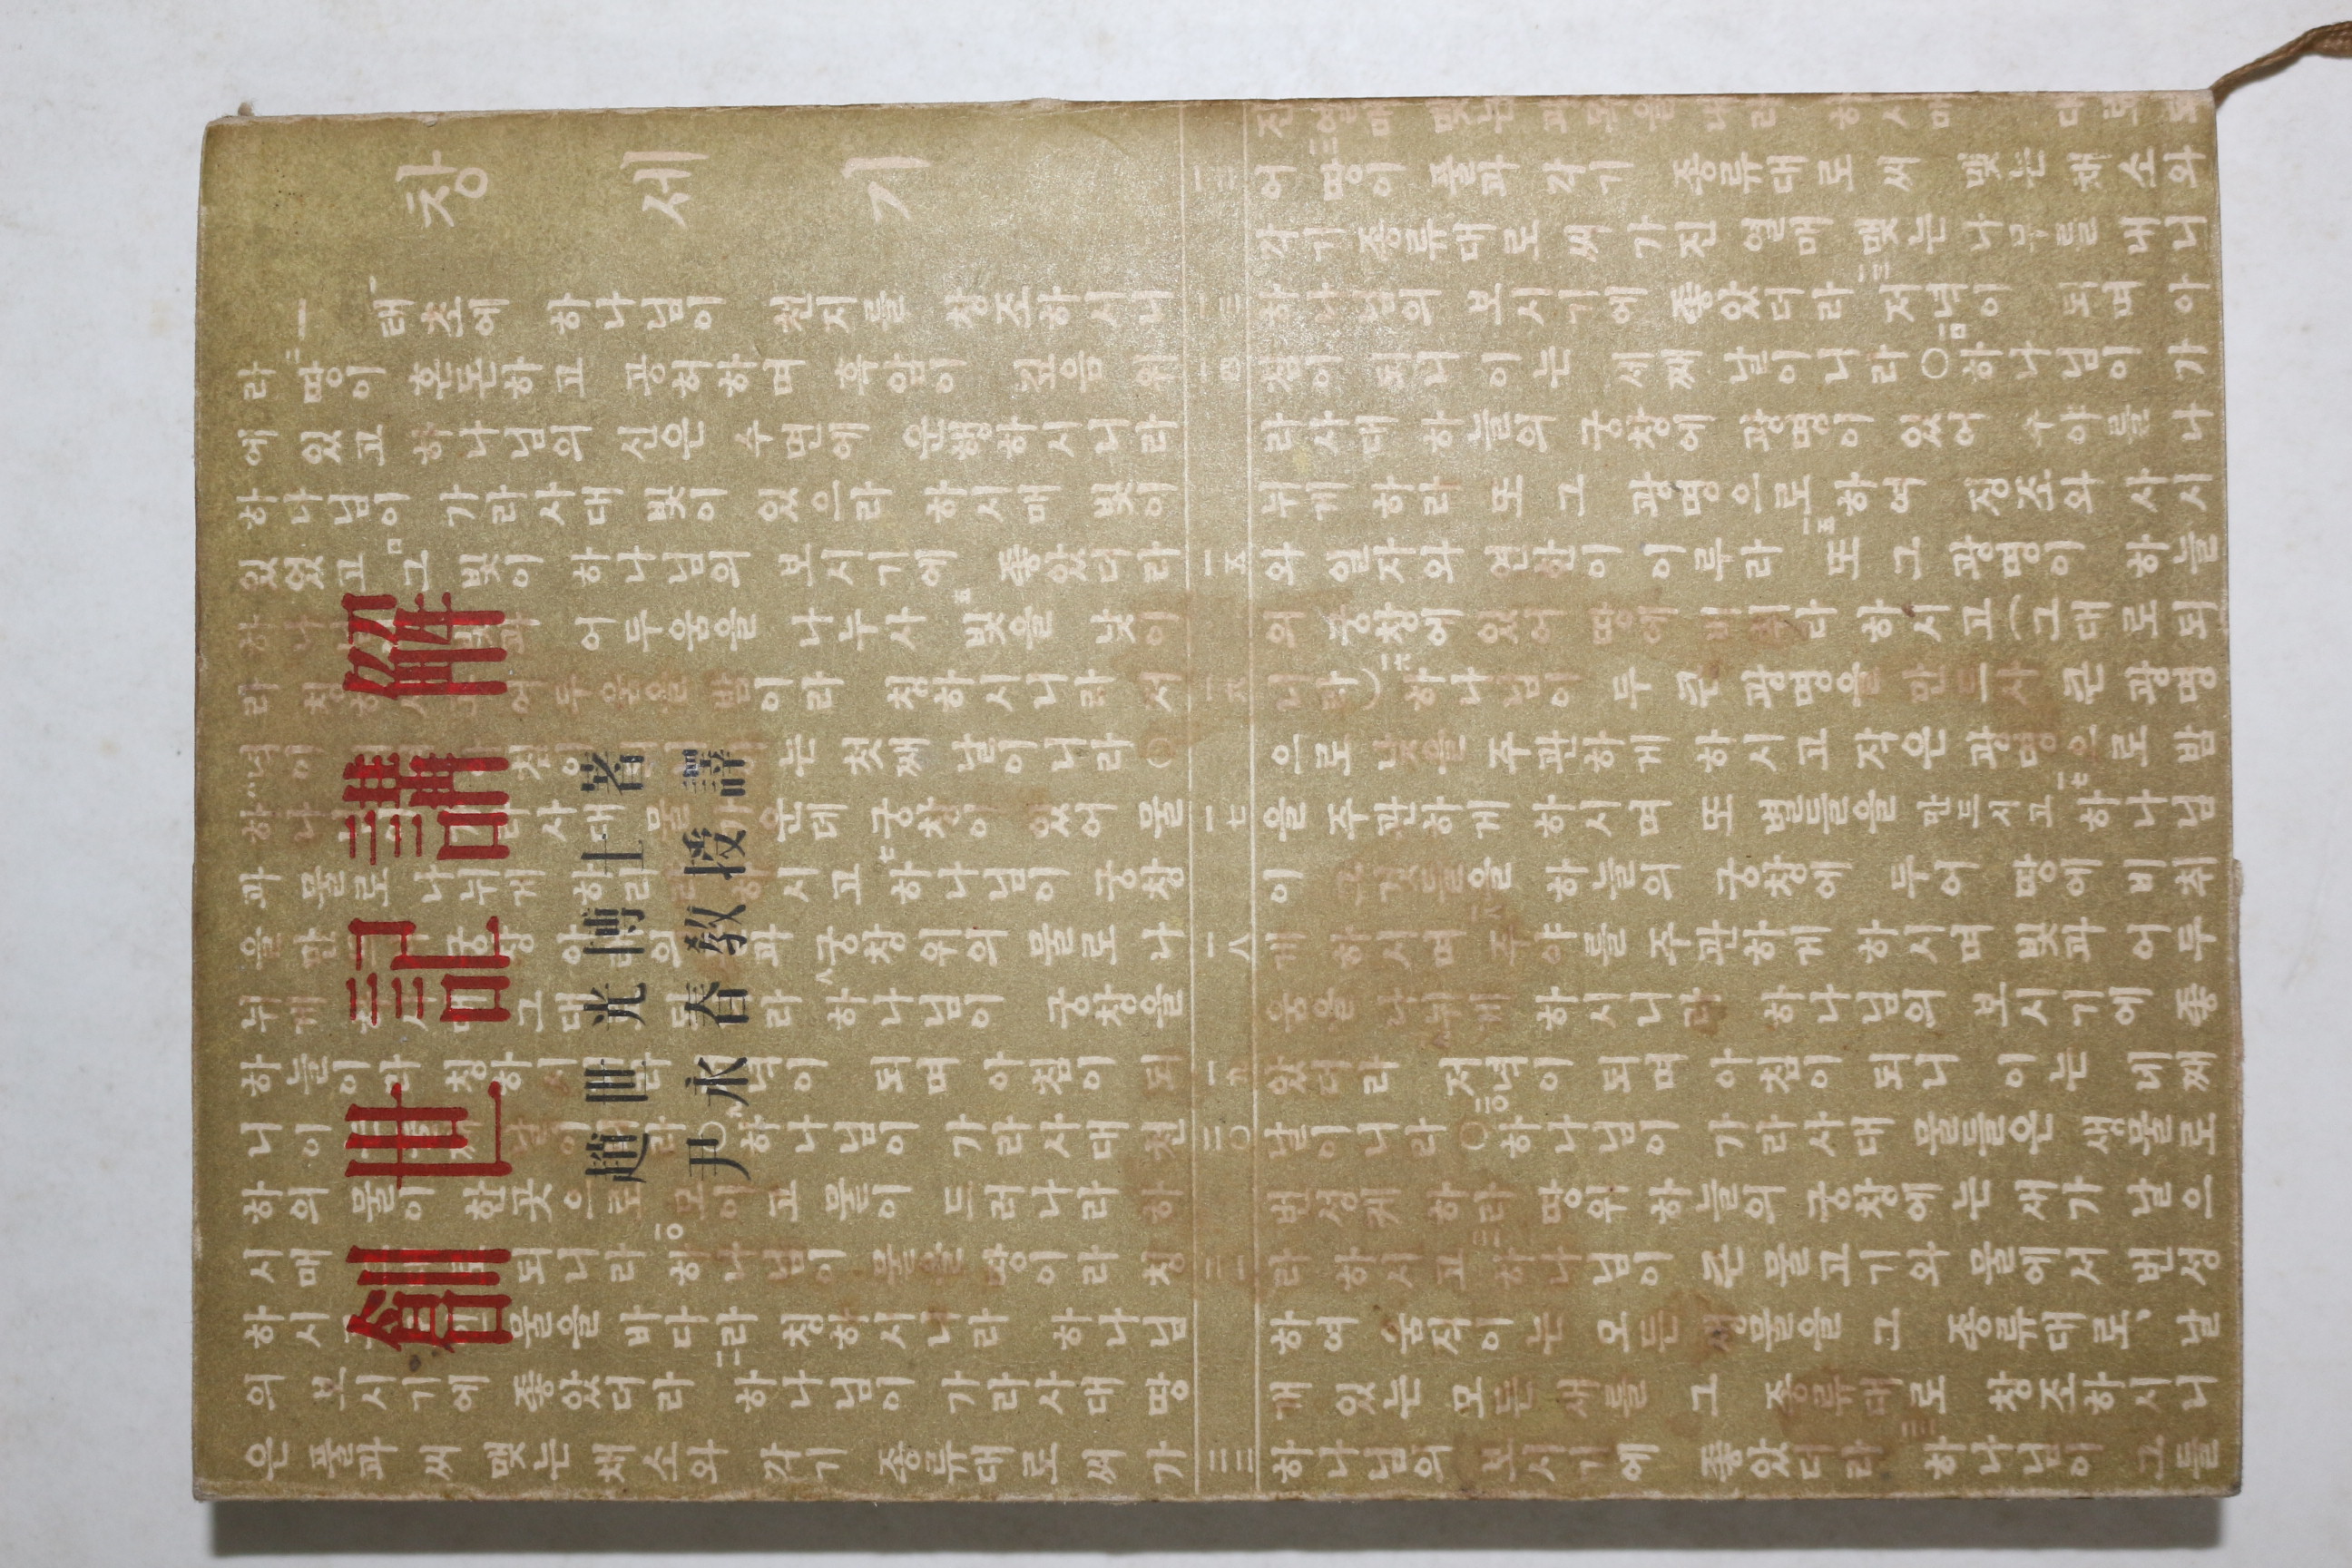 創世記講解
趙世光博士著
尹永春教授譯
창세기
一 태초에 하나님이 천지를 창조하시니
라 二땅이 혼돈하고 공허하며 흑암이 깊음 위
에 있고 하나님의 신은 수면에 운행하시니라
하나님이 가라사대 빛이 있으라 하시매 빛이
있었고 四그 빛이 하나님의 보시기에 좋았더라
어두움을 나누사 五빛을 낮이
라 어두움을 밤이라 칭하시니라 저
녁이 는 첫째 날이니라 ○
六하나 사대 물 가운데 궁창이 있어 물
과 물로 나뉘게 하리라 하시고 七하나님이 궁창
을 만 궁창 아 의 물과 궁창위의 물로 나
뉘게 그대 라 八하나님이 궁창을
하늘이라 칭하시 녁이 되며 아침이 되
니 이 날이 라 ○九하나님이 가라사대 천
하의 물이 한곳으로 모이고 뭍이 드러나라 하
시매 되니라 一〇하나님이 뭍을 땅이라 칭
하시 물을 바다라 칭하시니라 하나님
의 보시기에 좋았더라 一一하나님이 가라사대 땅
은 풀과 씨 맺는 채소와 각기 종류대로 씨 가
一二 一三 一四 一五 一六 一七 一八 一九 二〇 二一 二二
진 열매 맺는 과목을 내라 하시매 그대로 되
어 一二땅이 풀과 각기 종류대로 씨 맺는 채소와
각기 종류대로 씨 가진 열매 맺는 나무를 내니
하나님의 보시기에 좋았더라 一三저녁이 되며 아
침이 되니 이는 세째 날이니라 ○一四하나님이 가
라사대 하늘의 궁창에 광명이 있어 주야를 나
뉘게 하라 또 그 광명으로 하여 징조와 사시
와 일자와 연한이 이루라 一五또 그 광명이 하늘
의 궁창에 있어 땅에 비취라 하시고(그대로 되
니라) 一六하나님이 두 큰 광명을 만드사 큰 광명
으로 낮을 주관하게 하시고 작은 광명으로 밤
을 주관하게 하시며 또 별들을 만드시고 一七하나님
이 그것들을 하늘의 궁창에 두어 땅에 비취
게 하시며 一八주야를 주관하게 하시며 빛과 어두
움을 나뉘게 하시니라 하나님의 보시기에 좋
았더라 一九저녁이 되며 아침이 되니 이는 네째
날이니라 ○二〇하나님이 가라사대 물들은 생물로
번성케 하라 땅위 하늘의 궁창에는 새가 날으
라 하시고 二一하나님이 큰 물고기와 물에서 번성
하여 움직이는 모든 생물을 그 종류대로, 날
개 있는 모든 새를 그 종류대로 창조하시니
하나님의 보시기에 좋았더라 二二하나님이 그들